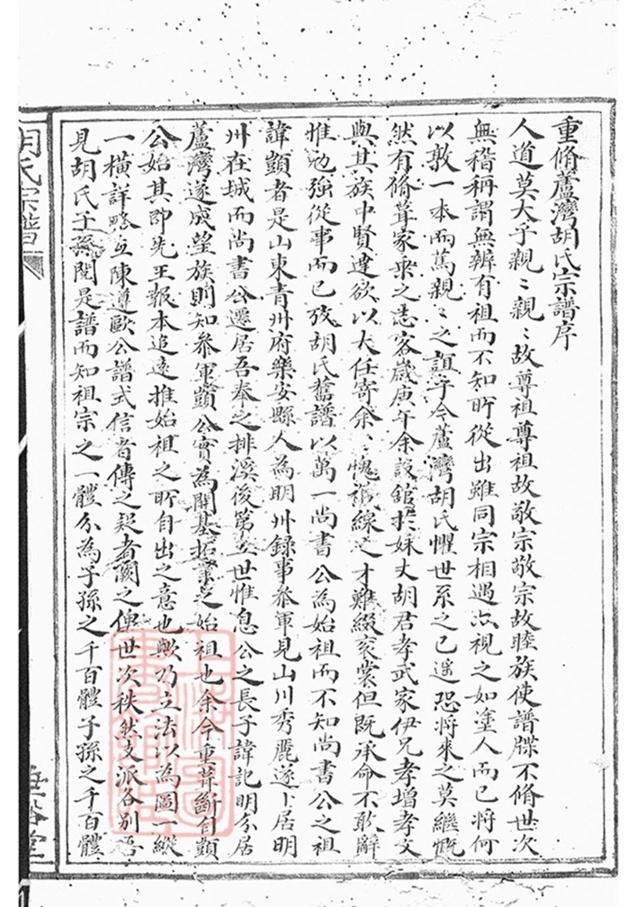 重脩蘆灣胡氏宗譜序
人道莫大乎親〻親〻故尊祖尊祖故敬宗敬宗故睦族使譜牒不脩世次
無稽稱謂無辨有祖而不知所從出雖同宗相遇亦視之如塗人而已將何
以敦一本而篤親〻之誼乎今蘆灣胡氏懼世系之已遥恐將來之莫繼慨
然有脩葺家乘之志客歲庚午余設舘於妹丈胡君孝武家伊兄孝增孝文
與其族中賢達欲以大任寄余〻愧襪線之才難綴衮裳但既承命不敢辭
惟勉强從事而已攷胡氏舊譜以萬一尚書公為始祖而不知尚書公之祖
諱顗者是山東青州府樂安縣人為明州録事叅軍見山川秀麗遂卜居明
州在城而尚書公遷居吾奉之排溪後第五世惟息公之長子諱記明分居
蘆灣遂成望族則知叅軍顗公實為開基拓業之始祖也余今重葺斷自顗
公始其即先王報本追遠推始祖之所自出之意也歟乃立法以為圖一縱
一横詳略互陳遵歐公譜式信者傳之疑者闕之俾世次秩然支派各別
見胡氏子孫閱是譜而知祖宗之一體分為子孫之千百體子孫之千百體
胡氏宗譜